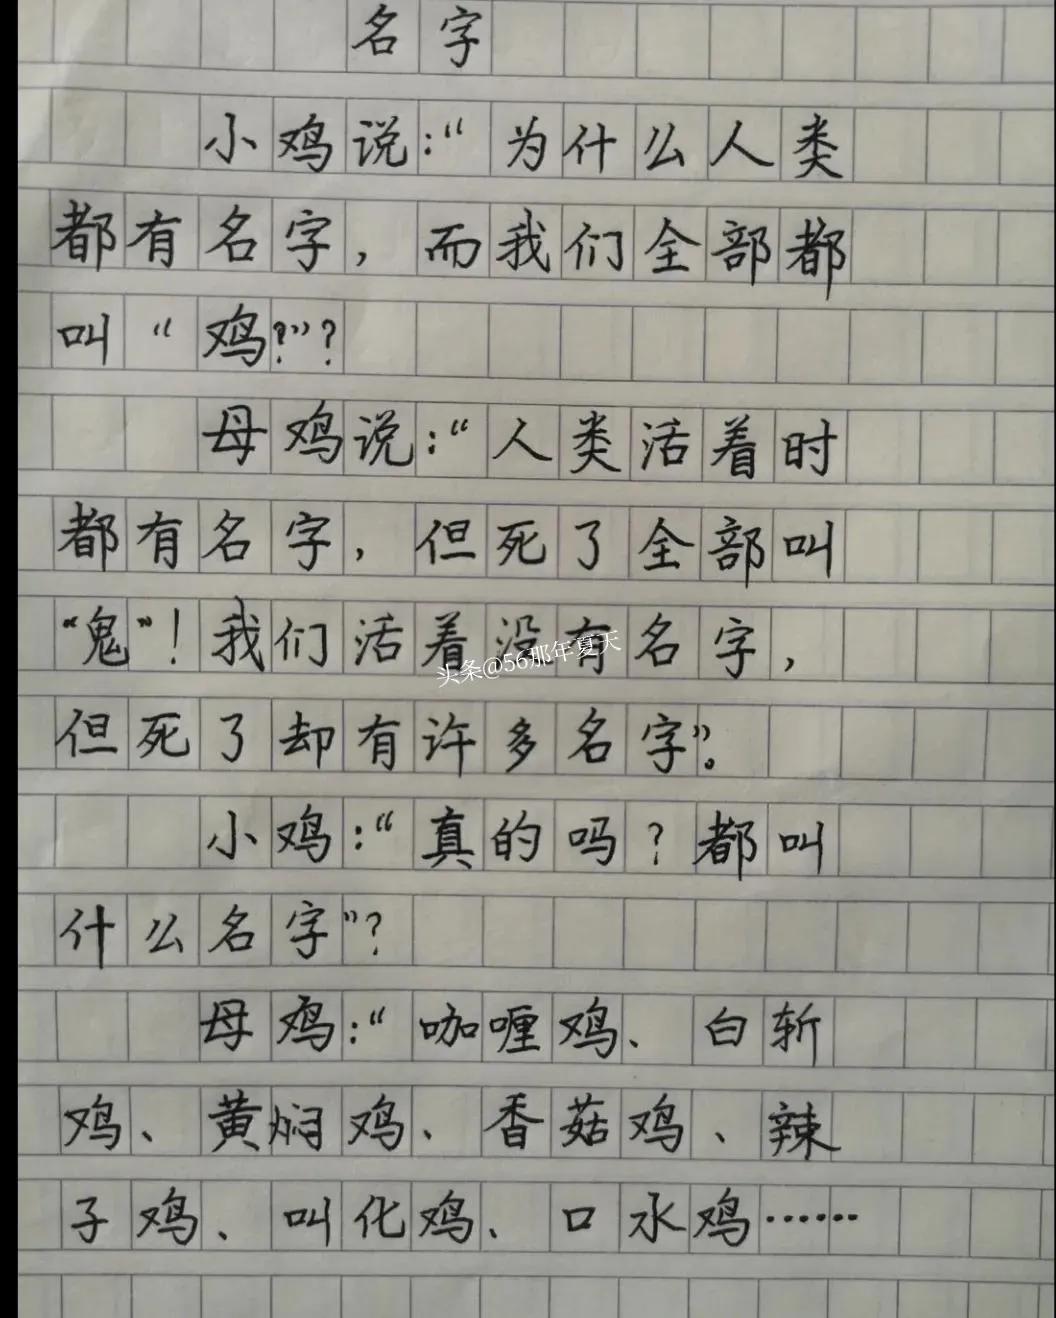 名字
小鸡说:“为什么人类
都有名字,而我们全部都
叫“鸡?”?
母鸡说:“人类活着时
都有名字,但死了全部叫
“鬼”!我们活着没有名字,
头条@56那年夏天
但死了却有许多名字”。
小鸡:“真的吗?都叫
什么名字”?
母鸡:“咖喱鸡、白斩
鸡、黄焖鸡、香菇鸡、辣
子鸡、叫化鸡、口水鸡……